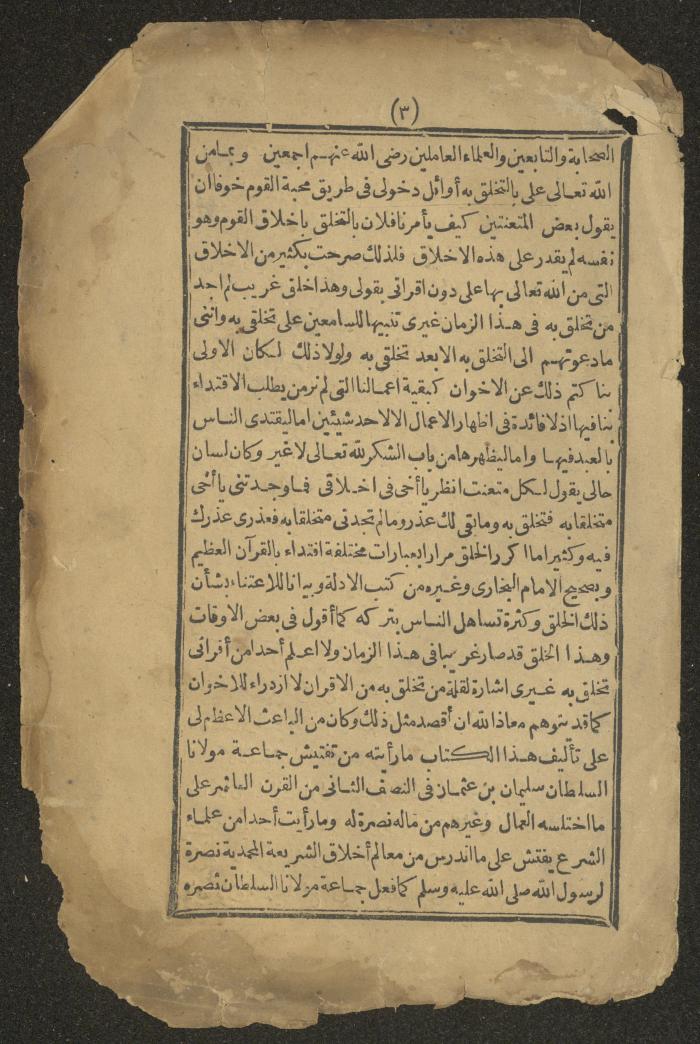 (٣)
الصحابة والتابعين والعلماء العاملين رضى الله عنهم اجمعين وبما من
الله تعالى على بالتخلق به أوائل دخولى فى طريق محبة القوم خوفا ان
يقول بعض المتعنتين كيف يأمرنا فلان بالتخلق باخلاق القوم وهو
نفسه لم يقدر على هذه الاخلاق فلذلك صرحت بكثير من الاخلاق
التى من الله تعالى بها على دون اقرانى بقولى وهذا خلق غريب لم اجد
من تخلق به فى هذا الزمان غيرى تنبيها للسامعين على تخلقى به واننى
مادعوتهم الى التخلق به الابعد تخلقى به ولولا ذلك لكان الاولى
بنا كتم ذلك عن الاخوان كبقية اعمالنا التى لم نر من يطلب الاقتداء
بنا فيها اذلا فائدة فى اظهار الاعمال الالاحد شيئين اما ليقتدى الناس
بالعبد فيها واما ليظهرها من باب الشكر لله تعالى لا غير وكان لسان
حالى يقول لكل متعنت انظر يا أخى فى اخلاقى فما وجدتنى يا أخى
متخلقا به فتخلق به وما بقى لك عذر ومالم تجدنى متخلقا به فعذرى عذرك
فيه وكثيرا ما اكرر الخلق مرارا بعبارات مختلفة اقتداء بالقرآن العظيم
وبصحيح الامام البخارى وغيره من كتب الادلة وبيانا للاعتناء بشأن
ذلك الخلق وكثرة تساهل الناس بتركه كما أقول فى بعض الاوقات
وهذا الخلق قد صار غريبا فى هذا الزمان ولا اعلم أحدا من أقرانى
تخلق به غيرى اشارة لقلة من تخلق به من الاقران لا ازدراء للاخوان
كما قد يتوهم معاذ الله ان أقصد مثل ذلك وكان من الباعث الاعظم لى
على تأليف هذا الكتاب ما رأيته من تفتيش جماعة مولانا
السلطان سليمان بن عثمان فى النصف الثانى من القرن العاشر على
ما اختلسه العمال وغيرهم من ماله نصرة له وما رأيت أحدا من علماء
الشرع يفتش على ما اندرس من معالم أخلاق الشريعة المحمدية نصرة
لرسول الله صلى الله عليه وسلم كما فعل جماعة مولانا السلطان نصره